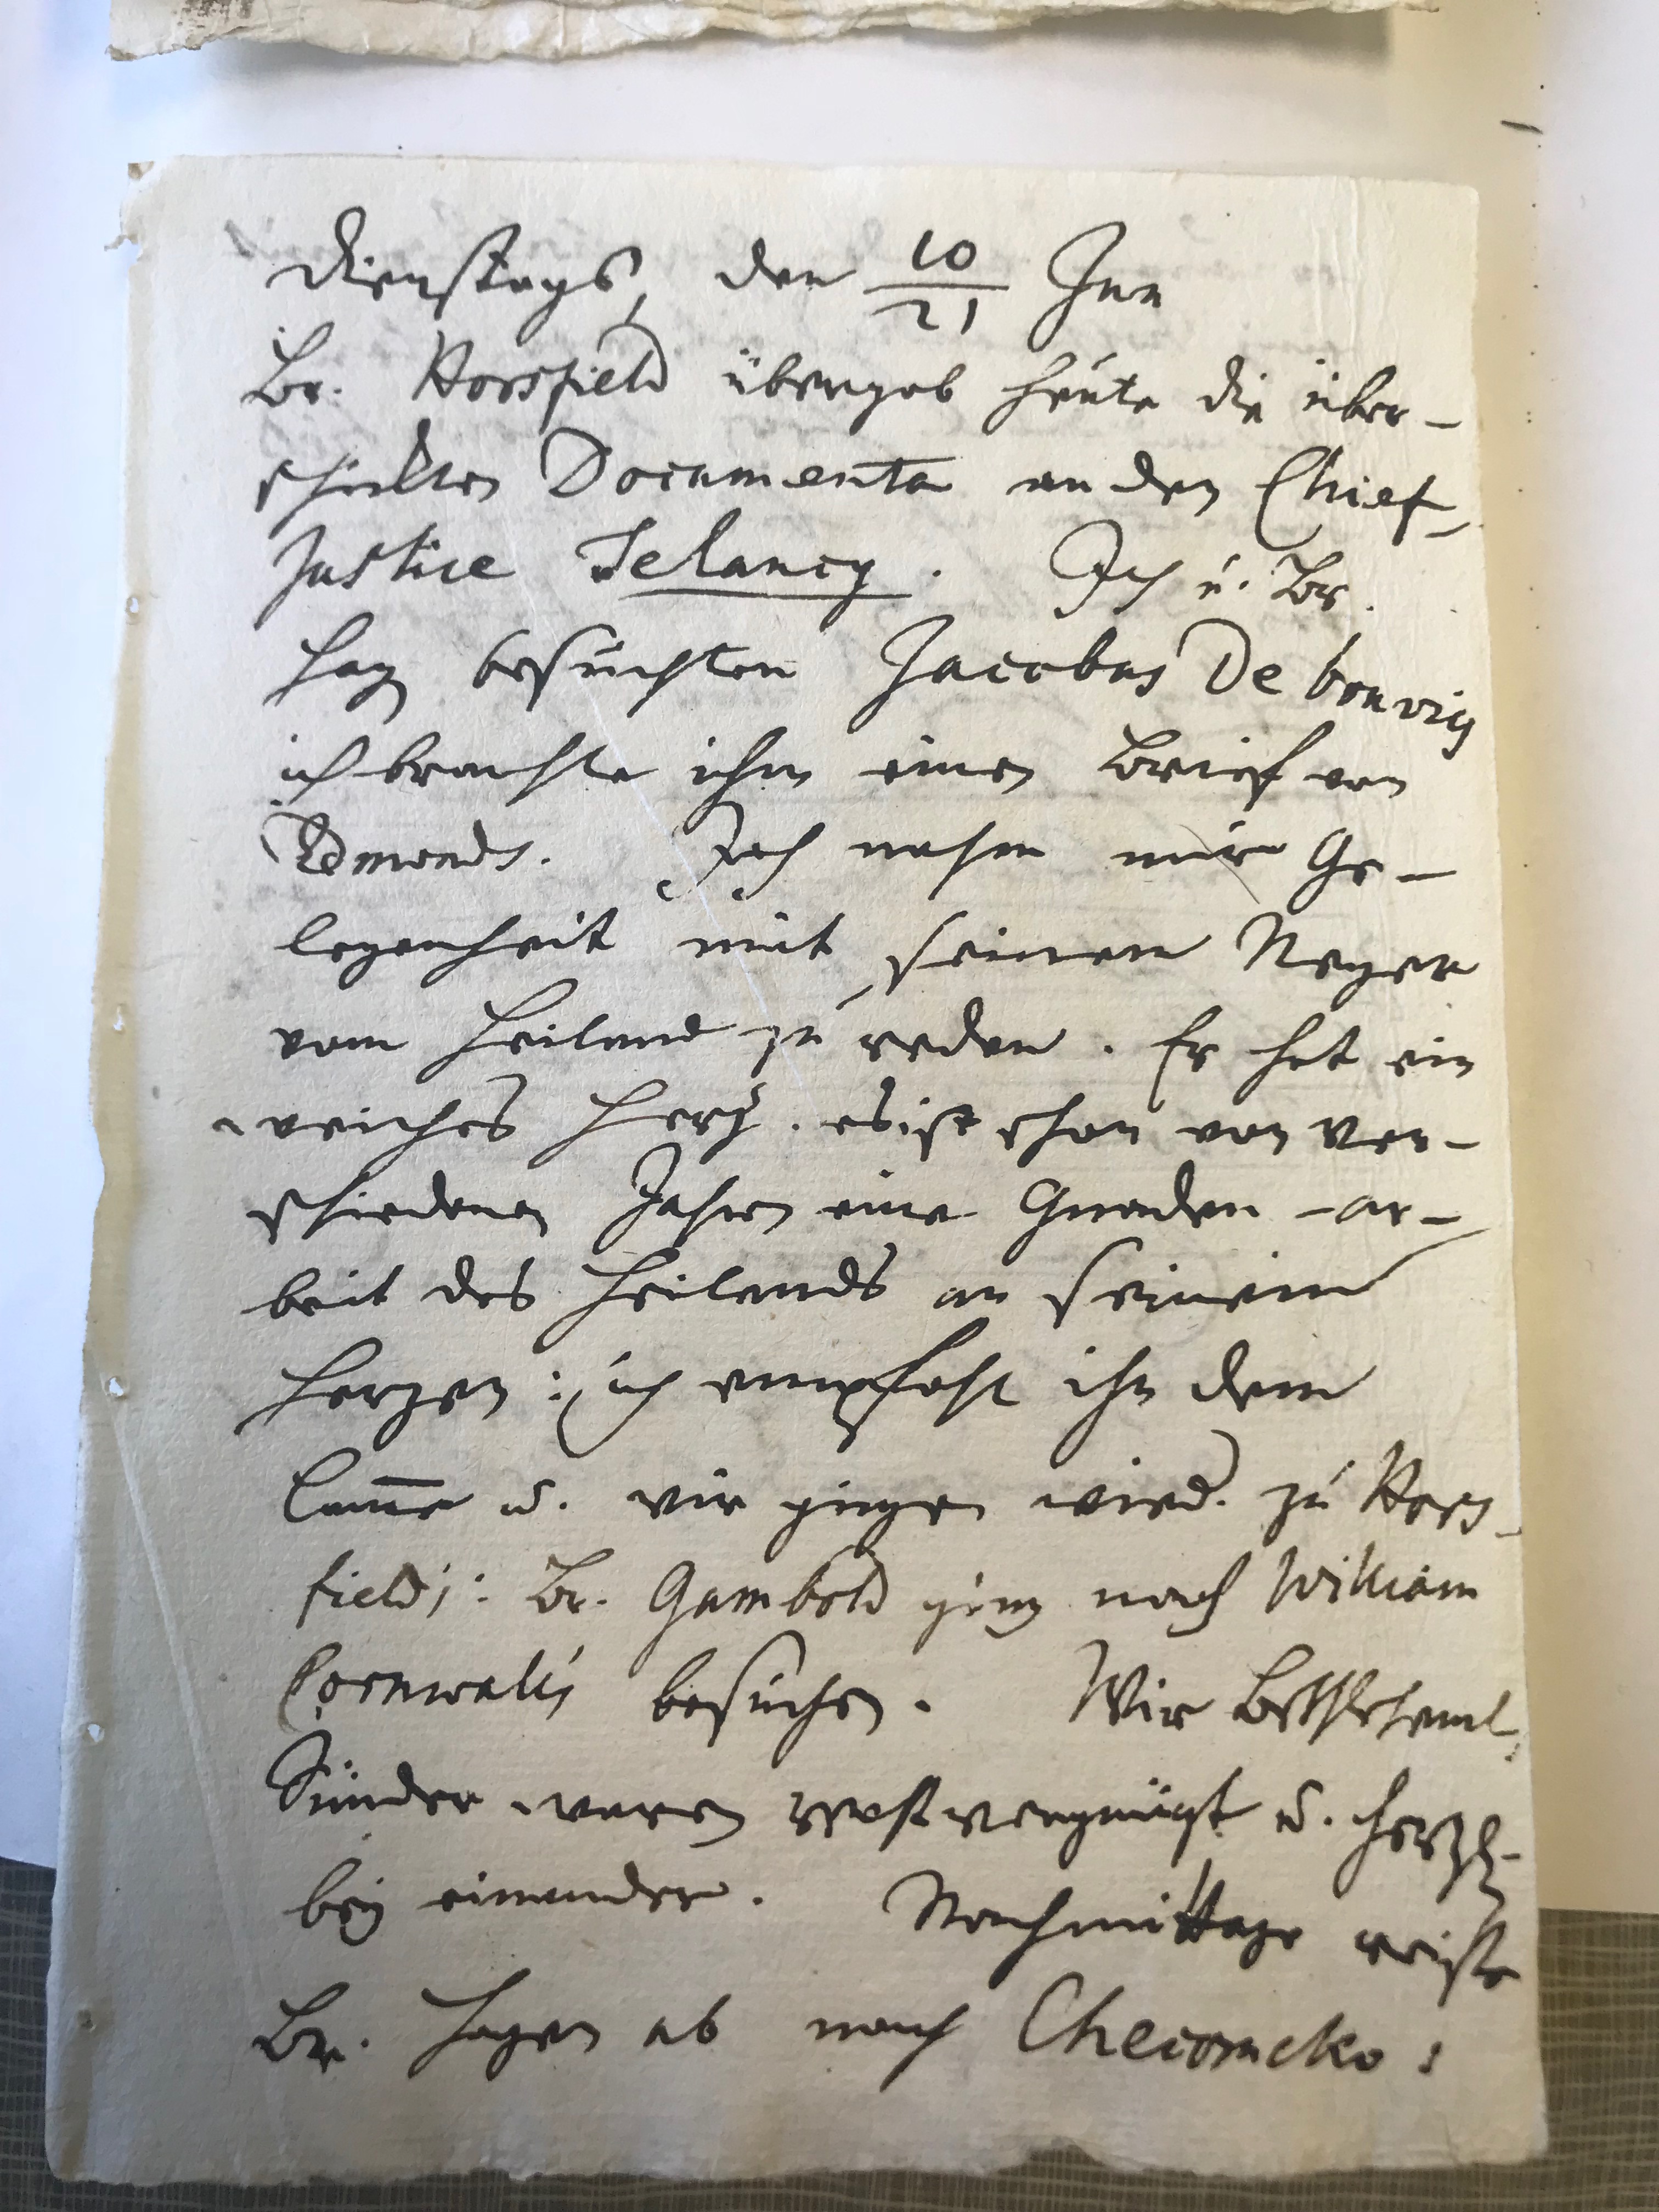 Dienstags, den 10/21 Jun
Br. Horsfield übergab heute die über-
schickten Documenta an den Chief-
Justice Delancy. Ich u. Br.
Hag besuchten Jacobus De bonvig
ich brachte ihm einen Brief von
Edmonds. Ich nahm mir Ge-
legenheit mit seinem Neger
vom Heiland zu reden. Er hat ein
weiches Hertz. es ist schon von ver-
schiedenen Jahren eine Gnaden-ar-
beit des Heilands an seinem
Herzen: ich empfahl ihn dem
Lamme u. wir gingen wied. zu Hors-
fields: Br. Gambold ging nach William
Cornwalls besuchen. Wir Bethlehemt.
Sünder waren recht vergnügt u. hertzl.
bey einander. Nachmittags reiste
Br. Hagen ab nach Checomeko: